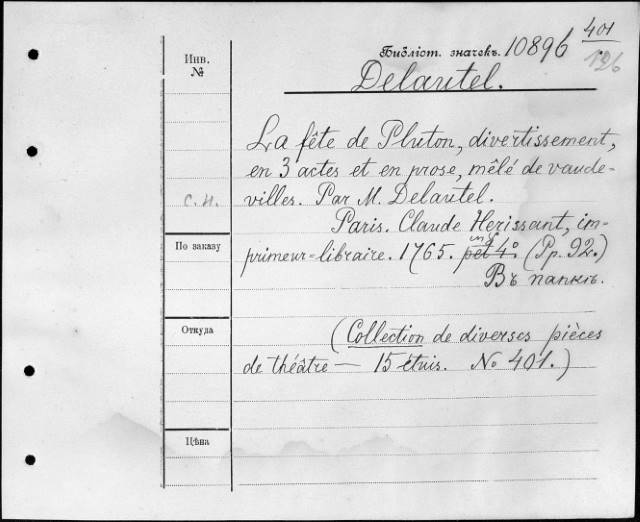 401
Инв.
№
Библіот. значекъ. 10896
126
Delautel.
La fête de Pluton, divertissement,
en 3 actes et en prose, mêlé de vaude-
С. Н. villes. Par M. Delautel.
Paris. Claude Herissant, im-
По заказу
primeur-libraire. 1765. pet 4º (Pp. 92.)
Въ папкѣ.
Откуда
(Collection de diverses pièces
de théâtre — 15 étuis. № 401.)
Цѣна